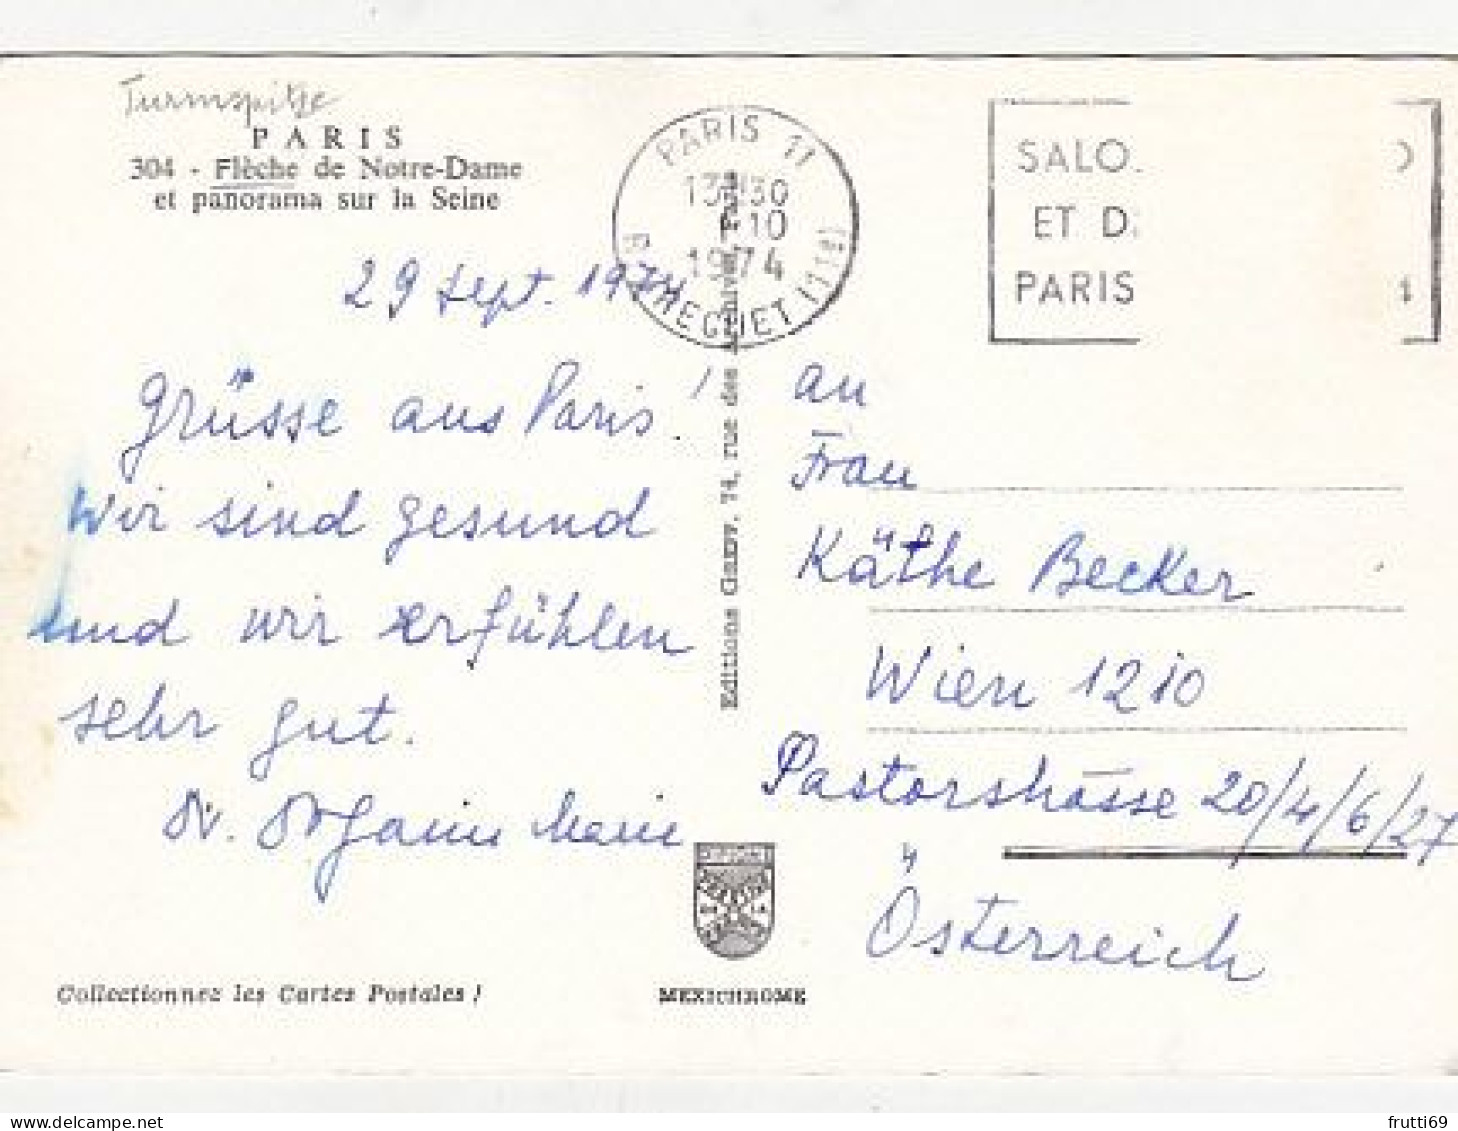 Turmspitze
PARIS
304 - Flèche de Notre-Dame
et panorama sur la Seine
29 sept. 1974
Grüsse aus Paris!
Wir sind gesund
und wir erfühlen
sehr gut.
Marie
Collectionnez les Cartes Postales !
PARIS 11
13H30
1-10
1974
BREGUET (11E)
Editions GUEVV, 74, rue des Archives, Paris
MEXICHROME
SALO
ET D
PARIS
an
Frau
Käthe Becker
Wien 1210
Pastorstrasse 20/4/6/27
Österreich
frutti69